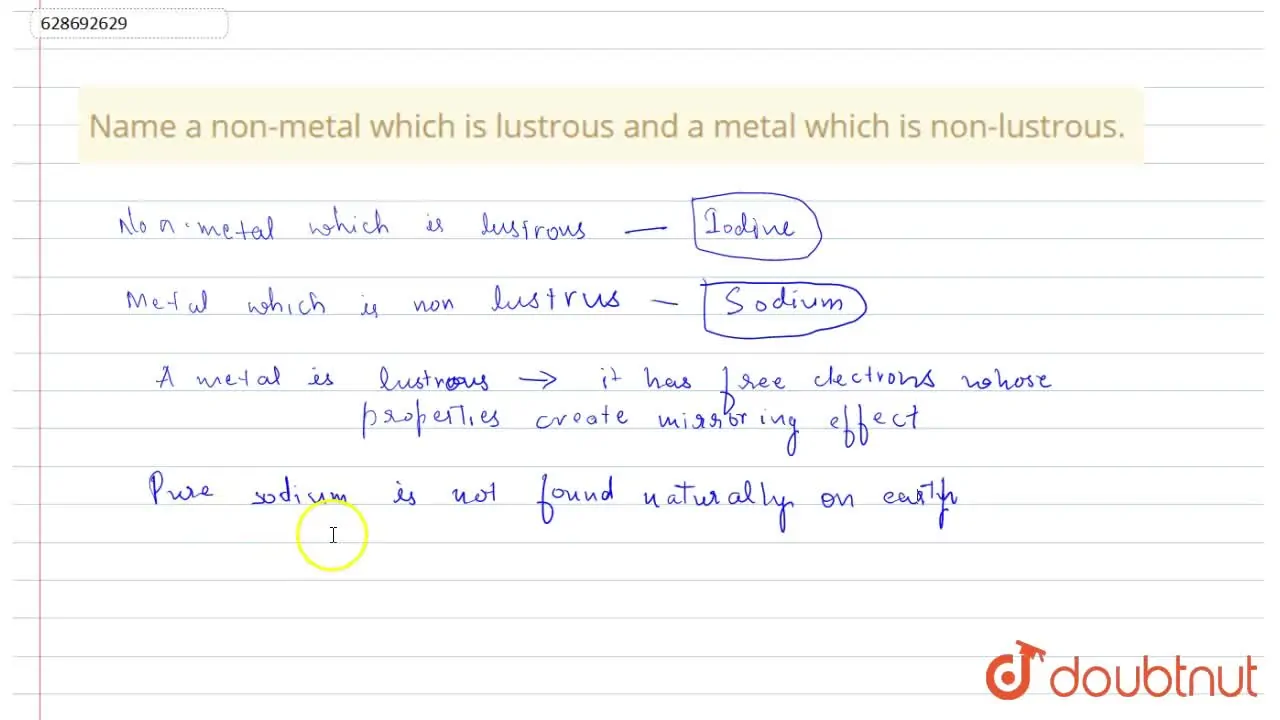 628692629
Name a non-metal which is lustrous and a metal which is non-lustrous.
Non-metal which is lustrous — Iodine
Metal which is non lustrus — Sodium
A metal is lustrous → it has free electrons whose
properties create mirroring effect
Pure sodium is not found naturally on earth
doubtnut